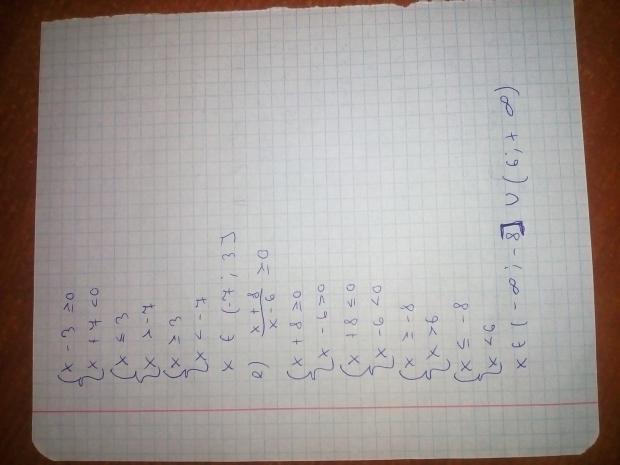 { x - 3 ≥ 0
x + 7 < 0
{ x ≤ 3
x > -7
{ x ≥ 3
x < -7
x ∈ (-7 ; 3]
2) x + 8 / x - 6 ≥ 0
{ x + 8 ≥ 0
x - 6 > 0
{ x + 8 ≤ 0
x - 6 < 0
{ x ≥ -8
x > 6
{ x ≤ -8
x < 6
x ∈ (-∞ ; -8] ∪ (6 ; +∞)